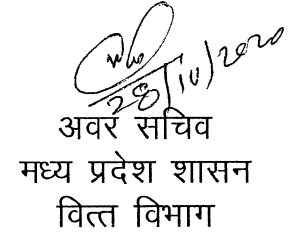 28/10/2020
अवर सचिव
मध्य प्रदेश शासन
वित्त विभाग